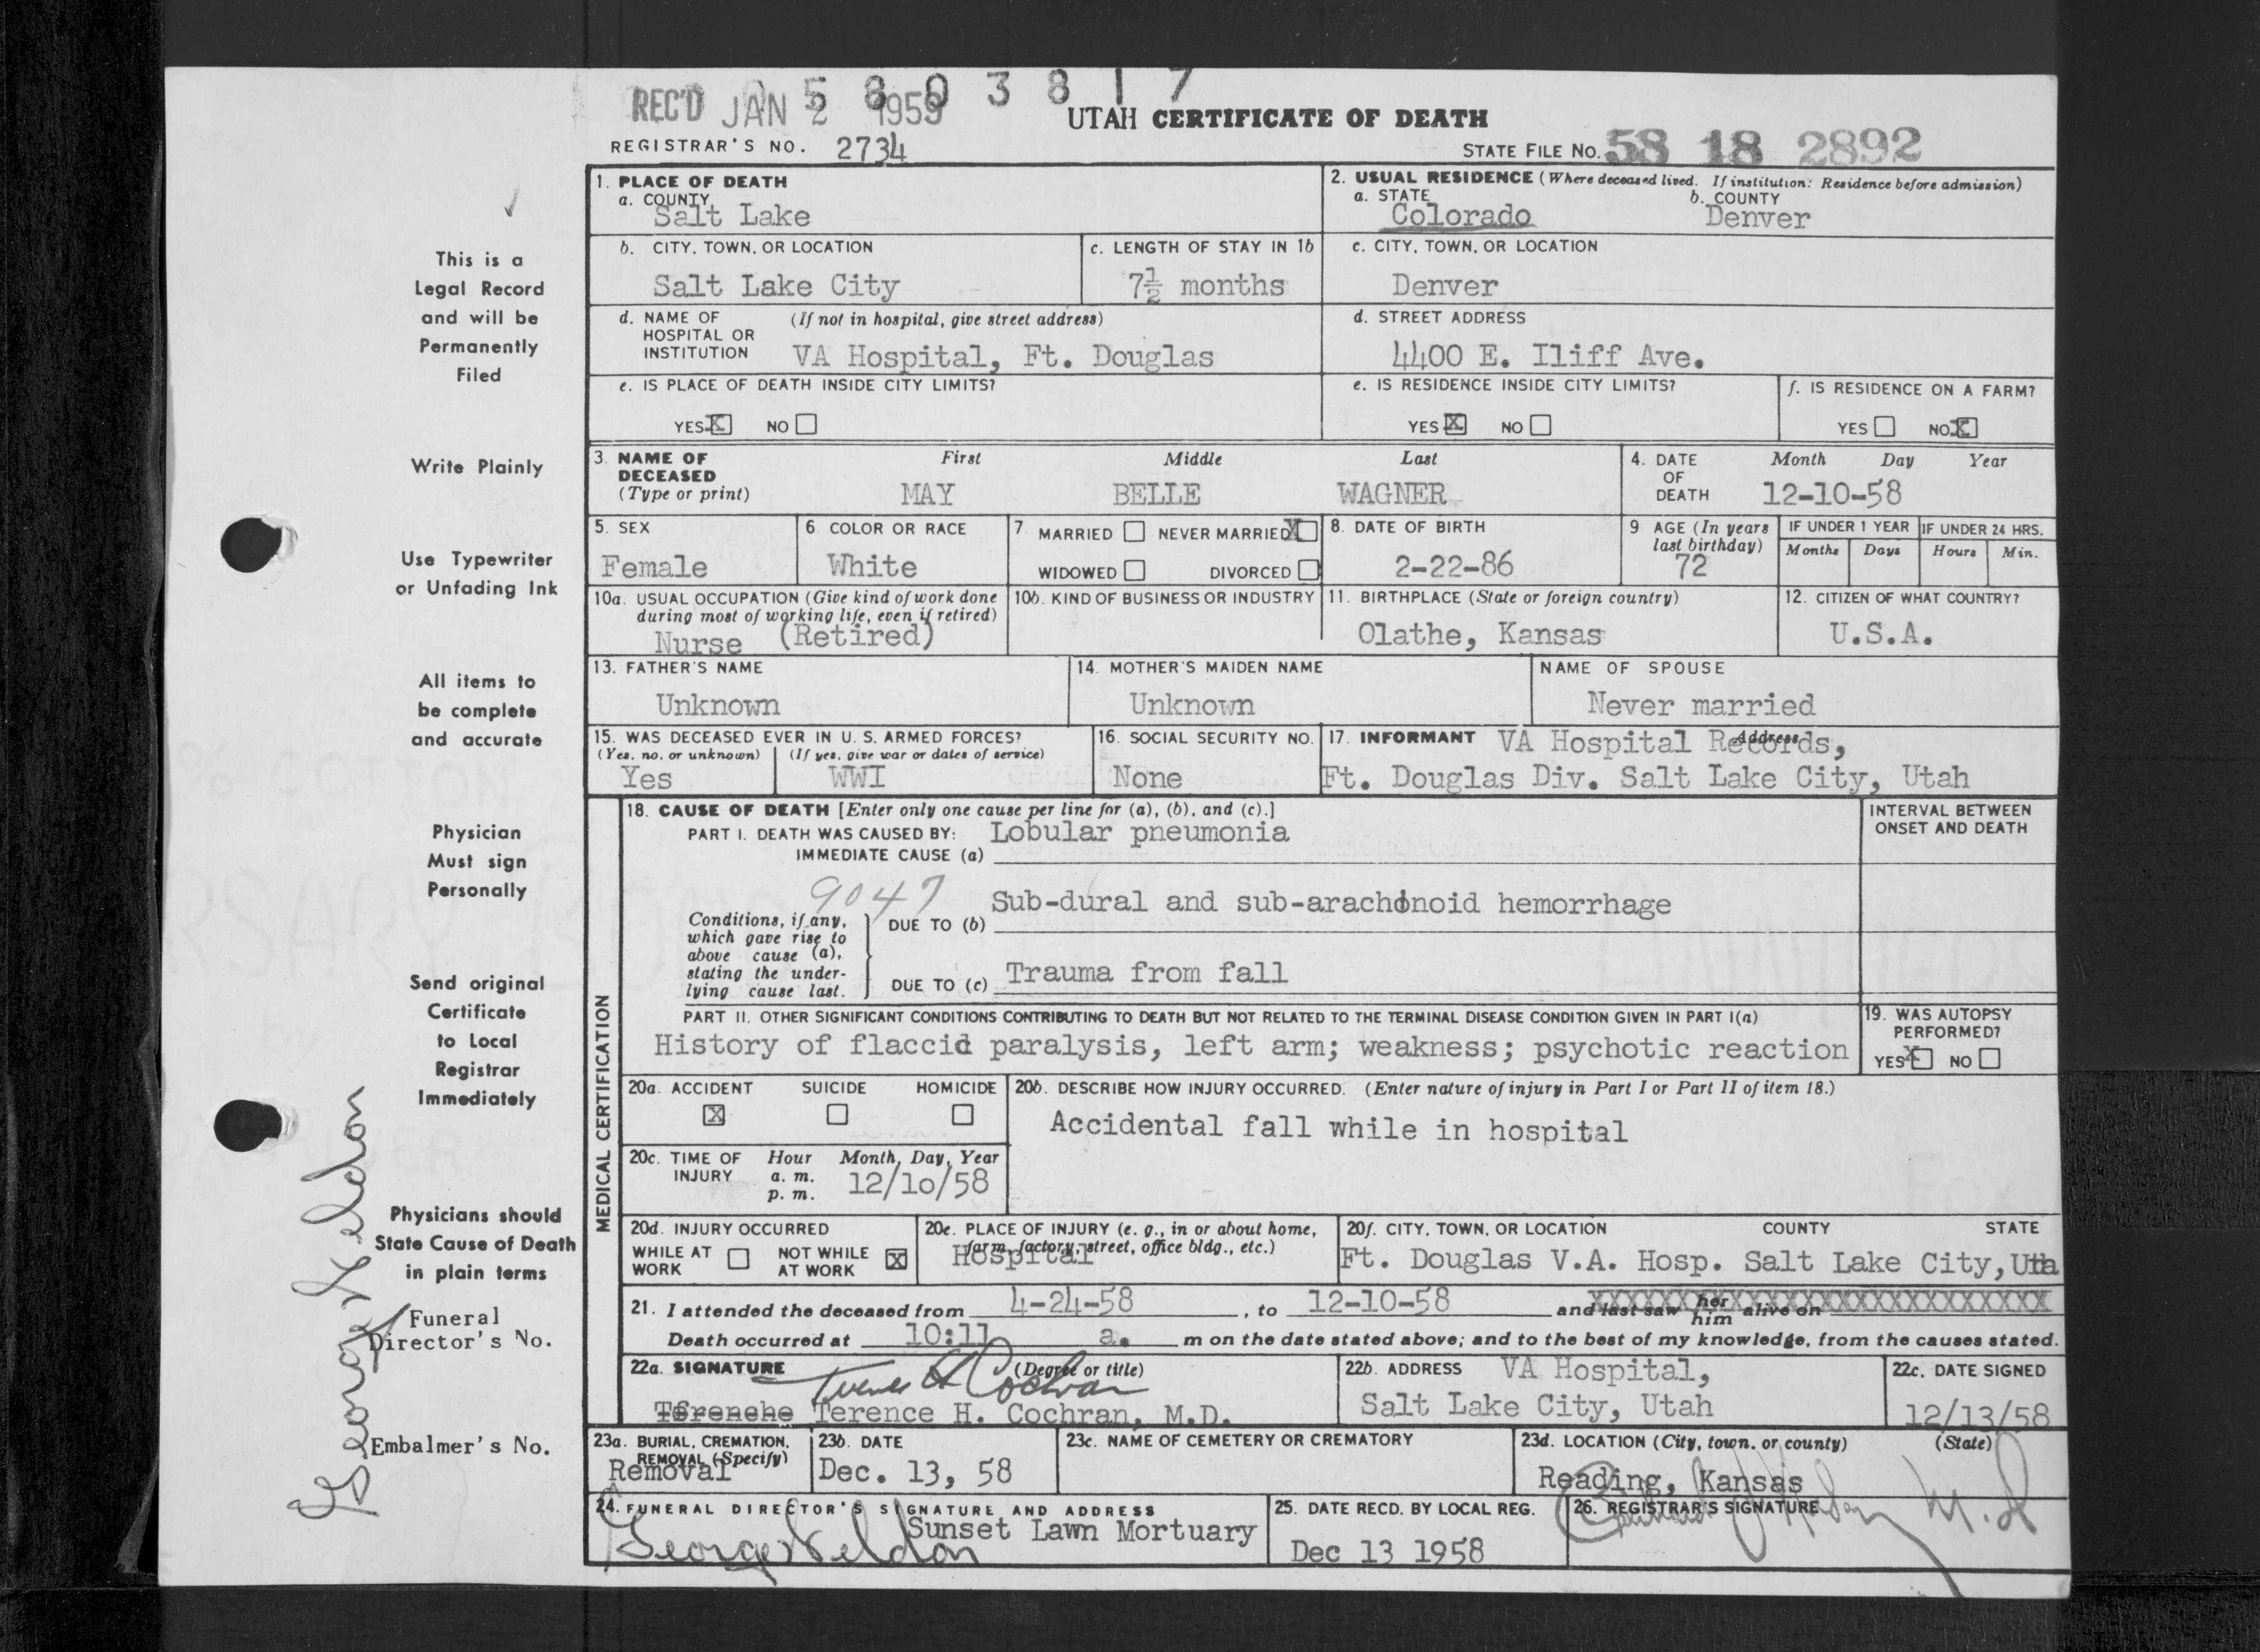 58 0 3 8 1 7
REC'D JAN 2 1959
UTAH CERTIFICATE OF DEATH
REGISTRAR'S NO. 2734
STATE FILE NO. 58 18 2892
This is a
Legal Record
and will be
Permanently
Filed
Write Plainly
Use Typewriter
or Unfading Ink
All items to
be complete
and accurate
Physician
Must sign
Personally
Send original
Certificate
to Local
Registrar
Immediately
Physicians should
State Cause of Death
in plain terms
Funeral
Director's No.
Embalmer's No.
George Weldon
1. PLACE OF DEATH
a. COUNTY
Salt Lake
2. USUAL RESIDENCE (Where deceased lived. If institution: Residence before admission)
a. STATE b. COUNTY
Colorado Denver
b. CITY, TOWN, OR LOCATION
Salt Lake City
c. LENGTH OF STAY IN 1b
7½ months
c. CITY, TOWN, OR LOCATION
Denver
d. NAME OF (If not in hospital, give street address)
HOSPITAL OR
INSTITUTION VA Hospital, Ft. Douglas
d. STREET ADDRESS
4400 E. Iliff Ave.
e. IS PLACE OF DEATH INSIDE CITY LIMITS?
YES X NO
e. IS RESIDENCE INSIDE CITY LIMITS?
YES X NO
f. IS RESIDENCE ON A FARM?
YES NO X
3. NAME OF First Middle Last
DECEASED
(Type or print) MAY BELLE WAGNER
4. DATE Month Day Year
OF
DEATH 12-10-58
5. SEX
Female
6 COLOR OR RACE
White
7 MARRIED NEVER MARRIED X
WIDOWED DIVORCED
8. DATE OF BIRTH
2-22-86
9 AGE (In years
last birthday)
72
IF UNDER 1 YEAR IF UNDER 24 HRS.
Months Days Hours Min.
10a. USUAL OCCUPATION (Give kind of work done
during most of working life, even if retired)
Nurse (Retired)
10b. KIND OF BUSINESS OR INDUSTRY
11. BIRTHPLACE (State or foreign country)
Olathe, Kansas
12. CITIZEN OF WHAT COUNTRY?
U.S.A.
13. FATHER'S NAME
Unknown
14. MOTHER'S MAIDEN NAME
Unknown
NAME OF SPOUSE
Never married
15. WAS DECEASED EVER IN U. S. ARMED FORCES?
(Yes, no, or unknown) (If yes, give war or dates of service)
Yes WWI
16. SOCIAL SECURITY NO.
None
17. INFORMANT Address
VA Hospital Records,
Ft. Douglas Div. Salt Lake City, Utah
MEDICAL CERTIFICATION
18. CAUSE OF DEATH [Enter only one cause per line for (a), (b), and (c).]
INTERVAL BETWEEN
ONSET AND DEATH
PART I. DEATH WAS CAUSED BY: Lobular pneumonia
IMMEDIATE CAUSE (a)
9047
Conditions, if any,
which gave rise to
above cause (a),
stating the under-
lying cause last.
DUE TO (b) Sub-dural and sub-arachonoid hemorrhage
DUE TO (c) Trauma from fall
PART II. OTHER SIGNIFICANT CONDITIONS CONTRIBUTING TO DEATH BUT NOT RELATED TO THE TERMINAL DISEASE CONDITION GIVEN IN PART I(a)
History of flaccid paralysis, left arm; weakness; psychotic reaction
19. WAS AUTOPSY
PERFORMED?
YES X NO
20a. ACCIDENT SUICIDE HOMICIDE
X
20b. DESCRIBE HOW INJURY OCCURRED. (Enter nature of injury in Part I or Part II of item 18.)
Accidental fall while in hospital
20c. TIME OF Hour Month, Day, Year
INJURY a. m.
p. m. 12/10/58
20d. INJURY OCCURRED
WHILE AT WORK NOT WHILE AT WORK X
20e. PLACE OF INJURY (e. g., in or about home,
farm, factory, street, office bldg., etc.)
Hospital
20f. CITY, TOWN, OR LOCATION COUNTY STATE
Ft. Douglas V.A. Hosp. Salt Lake City, Uta
21. I attended the deceased from 4-24-58, to 12-10-58 and last saw her him alive on XXXXXXXXXXXXXXXXXXXXXXXXXX
Death occurred at 10:11 a. m on the date stated above; and to the best of my knowledge, from the causes stated.
22a. SIGNATURE (Degree or title)
Terence H Cochran
Terence H. Cochran, M.D.
22b. ADDRESS VA Hospital,
Salt Lake City, Utah
22c. DATE SIGNED
12/13/58
23a. BURIAL, CREMATION,
REMOVAL (Specify)
Removal
23b. DATE
Dec. 13, 58
23c. NAME OF CEMETERY OR CREMATORY
23d. LOCATION (City, town, or county) (State)
Reading, Kansas
24. FUNERAL DIRECTOR'S SIGNATURE AND ADDRESS
George Weldon Sunset Lawn Mortuary
25. DATE RECD. BY LOCAL REG.
Dec 13 1958
26. REGISTRAR'S SIGNATURE
M.D